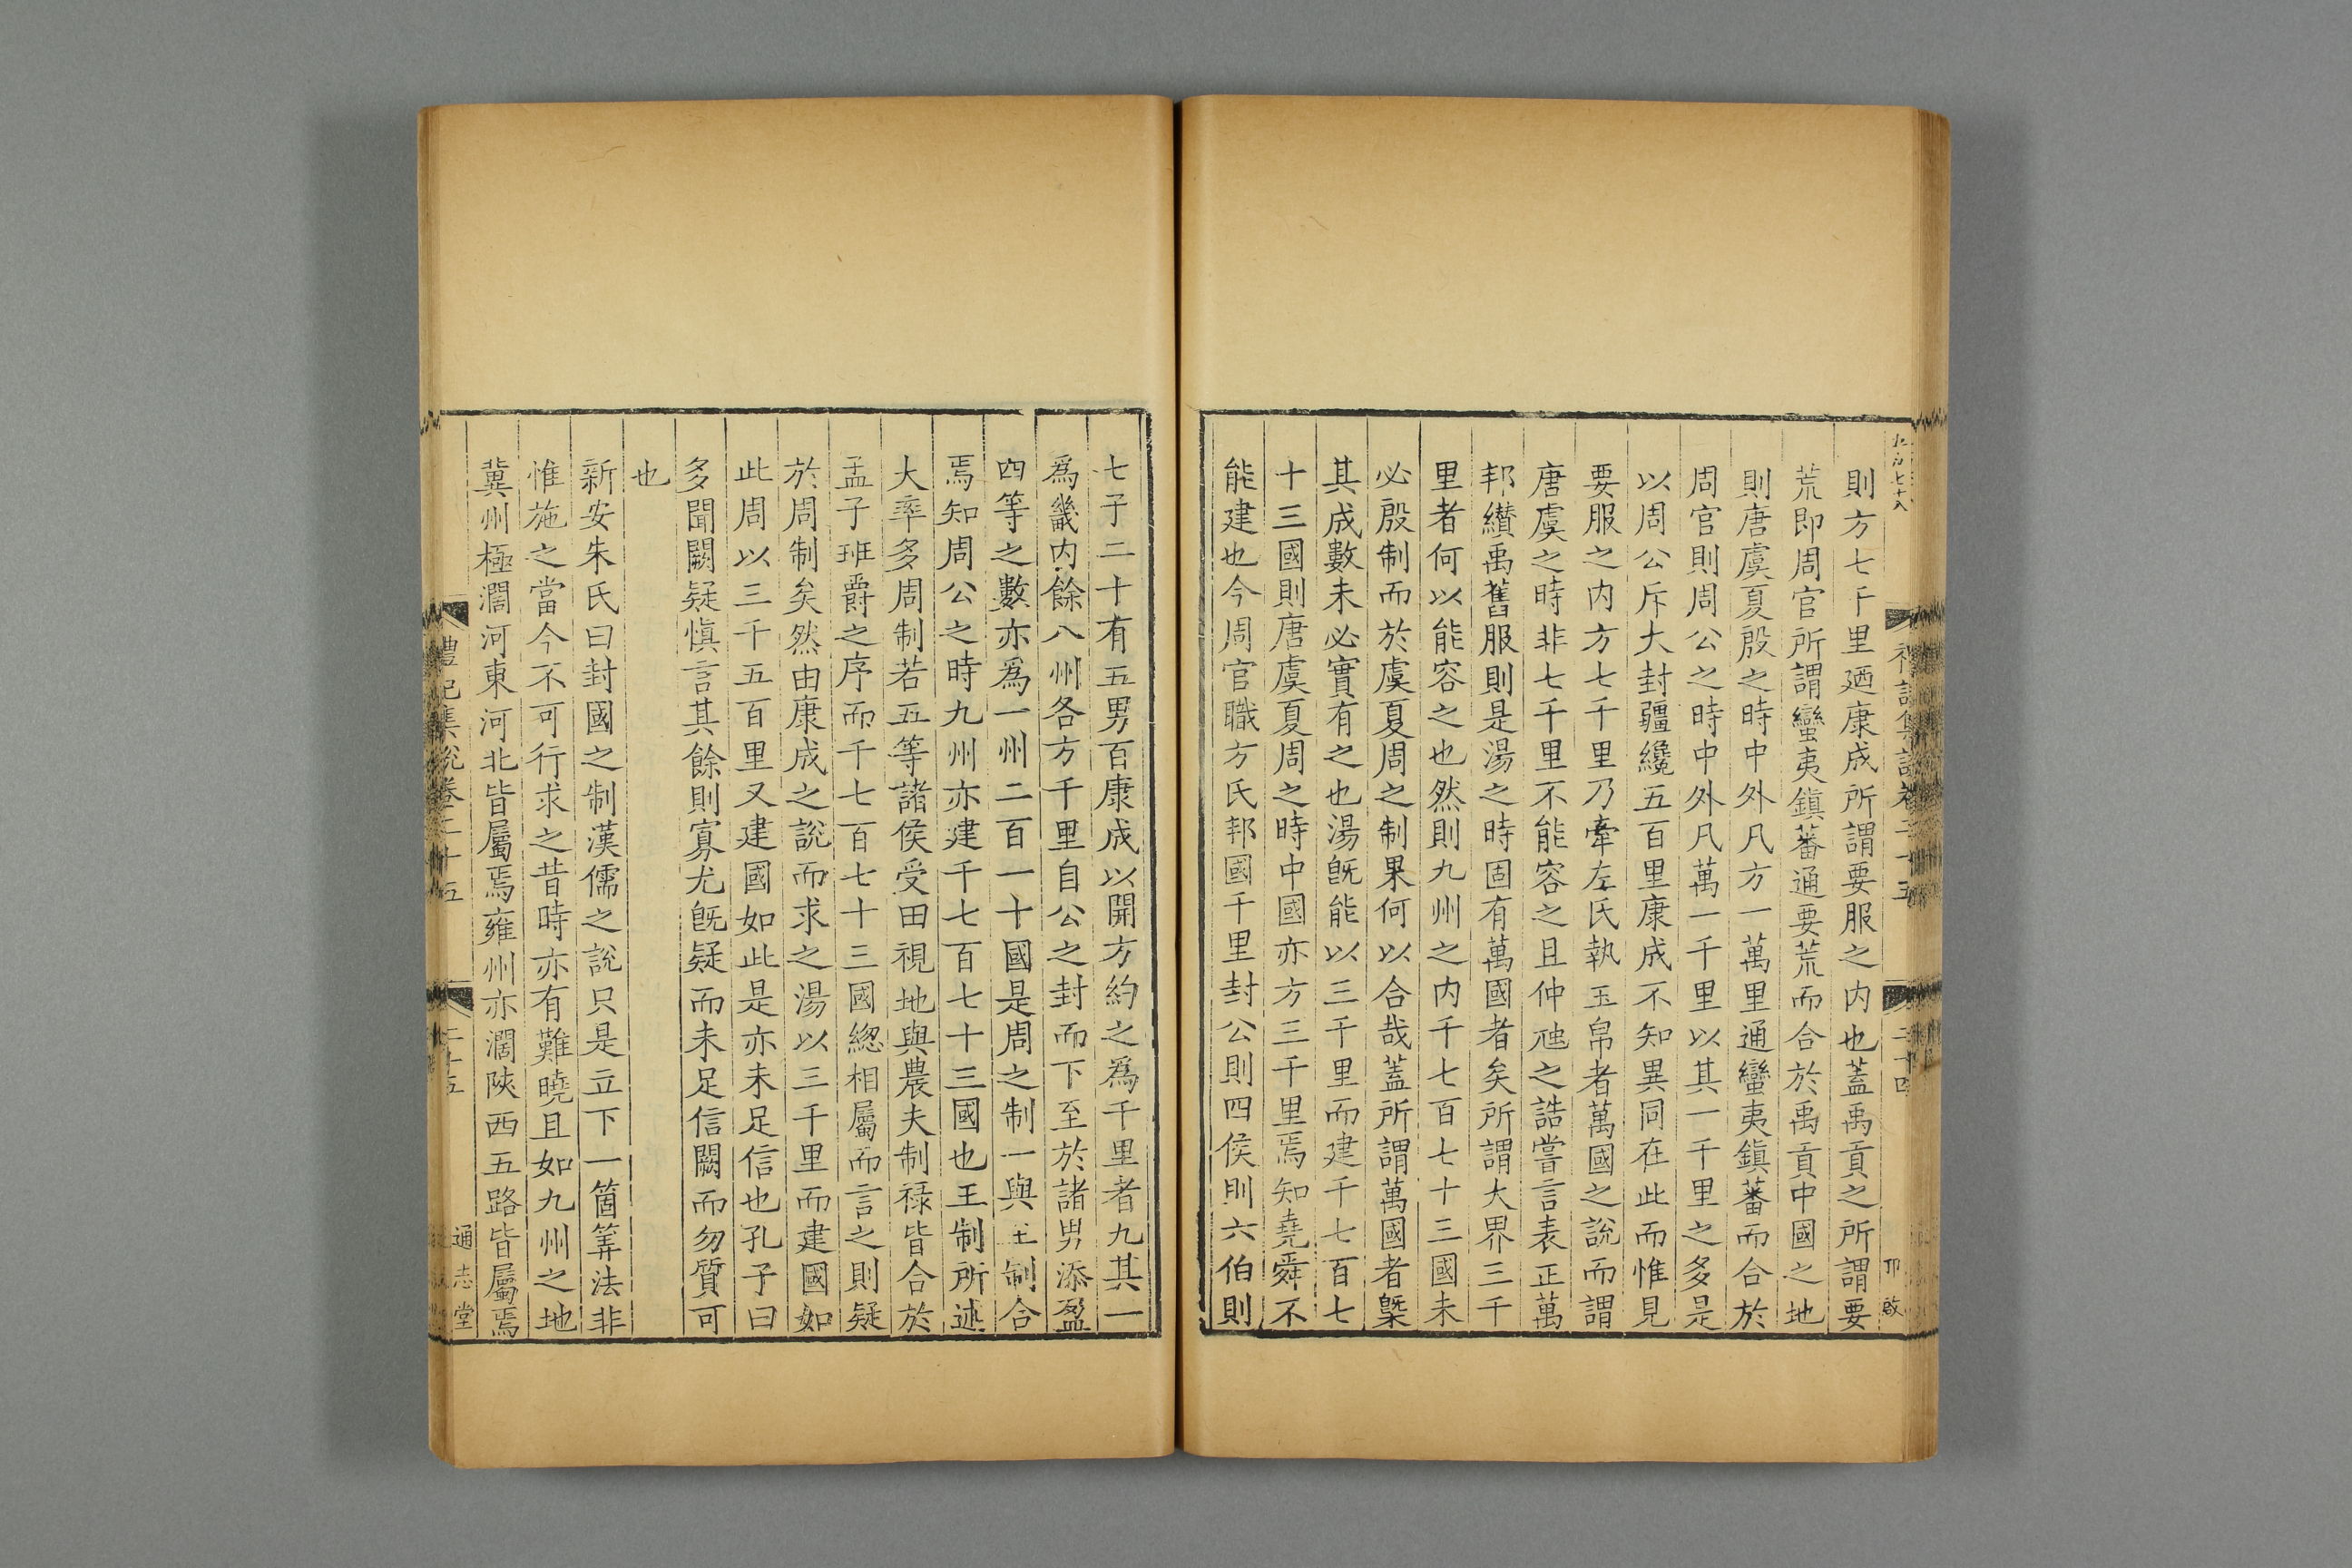 禮記集說卷二十五
二十四
則方七千里廼康成所謂要服之内也蓋禹貢之所謂要
荒即周官所謂蠻夷鎭蕃通要荒而合於禹貢中國之地
則唐虞夏殷之時中外凡方一萬里通蠻夷鎭蕃而合於
周官則周公之時中外凡萬一千里以其一千里之多是
以周公斥大封疆纔五百里康成不知異同在此而惟見
要服之内方七千里乃牽左氏執玉帛者萬國之說而謂
唐虞之時非七千里不能容之且仲虺之誥嘗言表正萬
邦纘禹舊服則是湯之時固有萬國者矣所謂大界三千
里者何以能容之也然則九州之内千七百七十三國未
必殷制而於虞夏周之制果何以合哉蓋所謂萬國者槩
其成數未必實有之也湯旣能以三千里而建千七百七
十三國則唐虞夏周之時中國亦方三千里焉知堯舜不
能建也今周官職方氏邦國千里封公則四侯則六伯則
七子二十有五男百康成以開方約之爲千里者九其一
爲畿内餘八州各方千里自公之封而下至於諸男添盈
四等之數亦爲一州二百一十國是周之制一與王制合
焉知周公之時九州亦建千七百七十三國也王制所述
大率多周制若五等諸侯受田視地與農夫制祿皆合於
孟子班爵之序而千七百七十三國緫相屬而言之則疑
於周制矣然由康成之說而求之湯以三千里而建國如
此周以三千五百里又建國如此是亦未足信也孔子曰
多聞闕疑愼言其餘則寡尤旣疑而未足信闕而勿質可
也
新安朱氏曰封國之制漢儒之說只是立下一箇筭法非
惟施之當今不可行求之昔時亦有難曉且如九州之地
冀州極濶河東河北皆屬焉雍州亦濶陝西五路皆屬焉
禮記集說卷二十五
二十五
通志堂